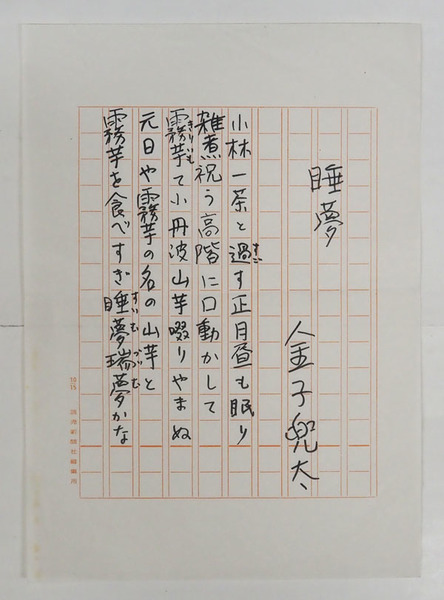 睡夢
金子兜太
小林一茶と過す正月昼も眠り
すご
雑煮祝う高階に口動かして
霧芋て小丹波山芋啜りやまぬ
きりいも
元日や霧芋の名の山芋と
霧芋を食べすぎ睡夢瑞夢かな
すいむ ずいむ